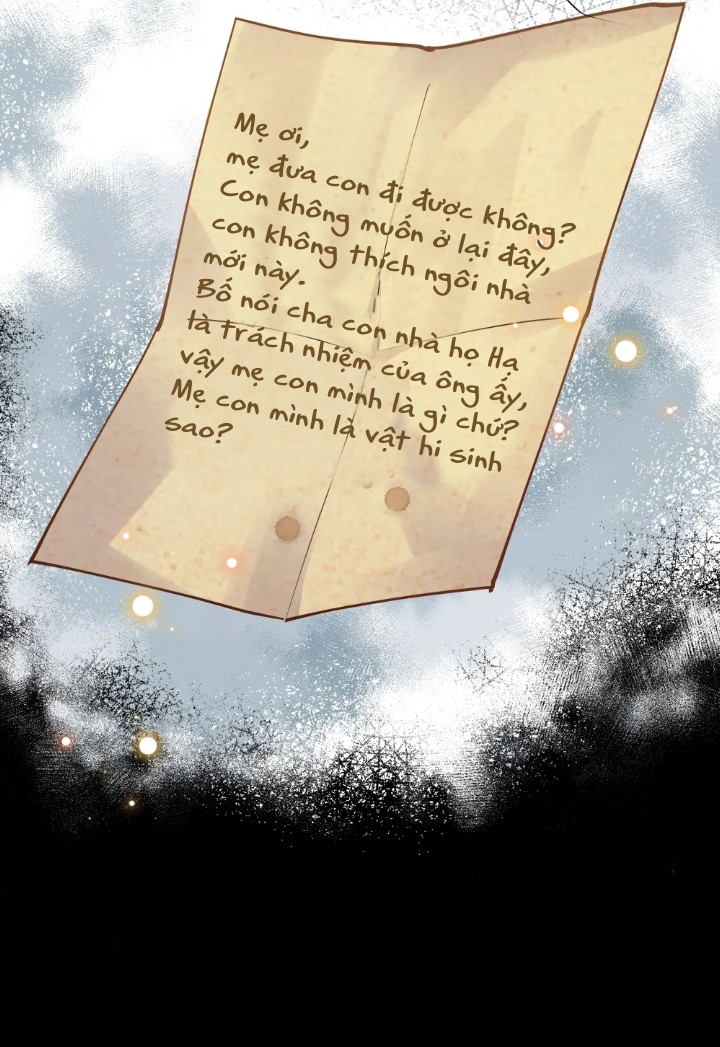 Mẹ ơi,
mẹ đưa con đi được không?
Con không muốn ở lại đây,
con không thích ngôi nhà
mới này.
Bố nói cha con nhà họ Hạ
là trách nhiệm của ông ấy,
vậy mẹ con mình là gì chứ?
Mẹ con mình là vật hi sinh
sao?